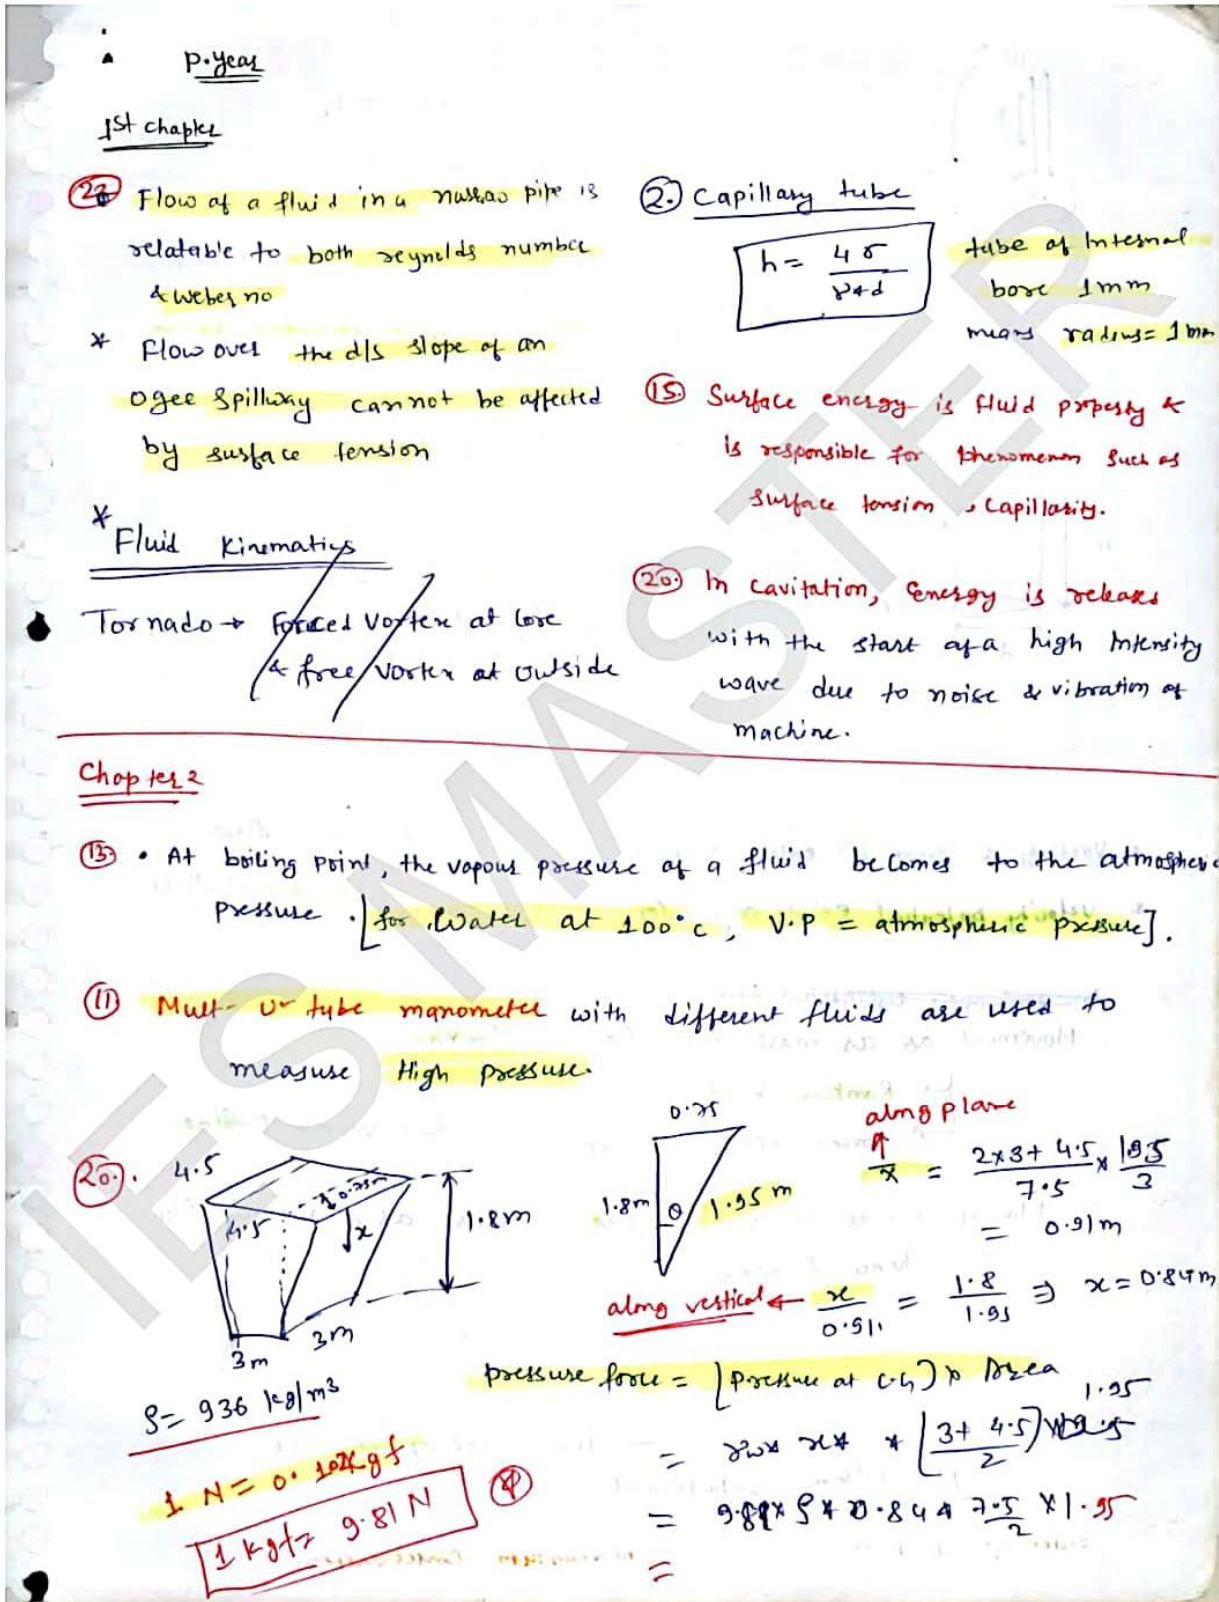 P.year
1st chapter
22 Flow of a fluid in a narrow pipe is
relatable to both reynolds number
& weber no
* Flow over the d/s slope of an
ogee spillway cannot be affected
by surface tension
* Fluid Kinematics
Tornado → Forced Vortex at core
& free vortex at outside
2. Capillary tube
h = 4σ / γ*d
tube of Internal
bore 1mm
means radius = 1mm
15. Surface energy is fluid property &
is responsible for phenomenon such as
surface tension, capillarity.
20. In cavitation, Energy is releases
with the start of a high Intensity
wave due to noise & vibration of
machine.
Chapter 2
13 • At boiling point, the vapour pressure of a fluid becomes to the atmospheric
pressure. [for water at 100°c, V.P = atmospheric pressure].
11 Mult- U- tube manometer with different fluids are used to
measure High pressure.
20.
4.5
4.5
0.75m
x
1.8m
3m
3m
ρ = 936 kg/m³
1 N = 0.102kgf
1 kgf = 9.81 N
0.75
1.8m
θ
1.95 m
along plane
x̄ = 2x3+4.5 / 7.5 x 1.95 / 3
= 0.91m
along vertical ← x / 0.91 = 1.8 / 1.95 ⇒ x = 0.84m
pressure force = (Pressure at C.G) x Area
= γw x x * (3+4.5 / 2) x 1.95
= 9.81 x ρ * 0.84 * 7.5 / 2 x 1.95
=
IES MASTER